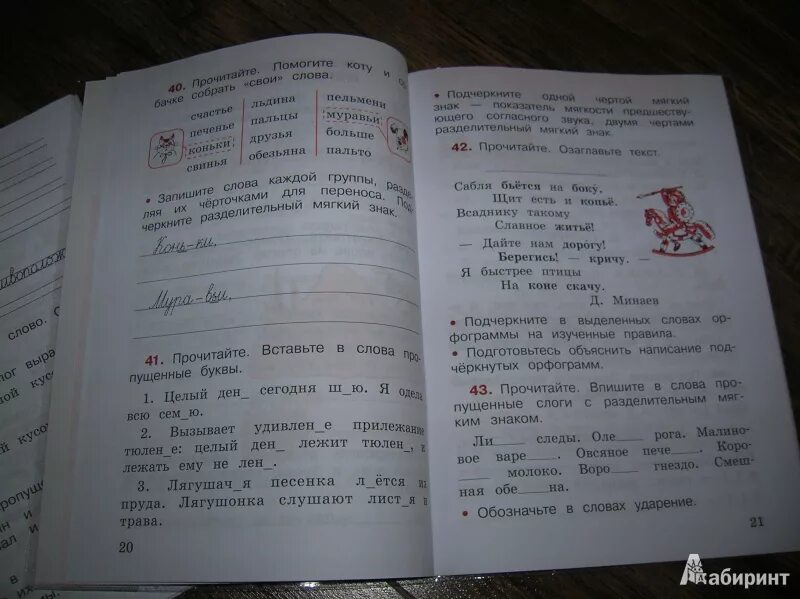 40. Прочитайте. Помогите коту и со
бачке собрать «свои» слова.
счастье льдина пельмени
печенье пальцы муравьи
коньки друзья больше
свинья обезьяна пальто
• Запишите слова каждой группы, разде
ляя их чёрточками для переноса. Под
черкните разделительный мягкий знак.
Конь-ки,
Мура-вьи,
41. Прочитайте. Вставьте в слова про
пущенные буквы.
1. Целый ден_ сегодня ш_ю. Я одела
всю сем_ю.
2. Вызывает удивлен_е прилежание
тюлен_е: целый ден_ лежит тюлен_, и
лежать ему не лен_.
3. Лягушач_я песенка л_ётся из
пруда. Лягушонка слушают лист_я и
трава.
20
• Подчеркните одной чертой мягкий
знак — показатель мягкости предшеству-
ющего согласного звука, двумя чертами
разделительный мягкий знак.
42. Прочитайте. Озаглавьте текст.
Сабля бьётся на боку,
Щит есть и копьё.
Всаднику такому
Славное житьё!
— Дайте нам дорогу!
Берегись! — кричу. —
Я быстрее птицы
На коне скачу.
Д. Минаев
• Подчеркните в выделенных словах ор-
фограммы на изученные правила.
• Подготовьтесь объяснить написание под-
чёркнутых орфограмм.
43. Прочитайте. Впишите в слова про-
пущенные слоги с разделительным мяг-
ким знаком.
Ли____ следы. Оле____ рога. Малино-
вое варе____. Овсяное пече____. Коро-
____ молоко. Воро____ гнездо. Смеш-
ная обе____на.
• Обозначьте в словах ударение.
21
Лабиринт
ивополож
слово. С
лог выра
ной кус
й кусо
ропущ
н и
ал и
их